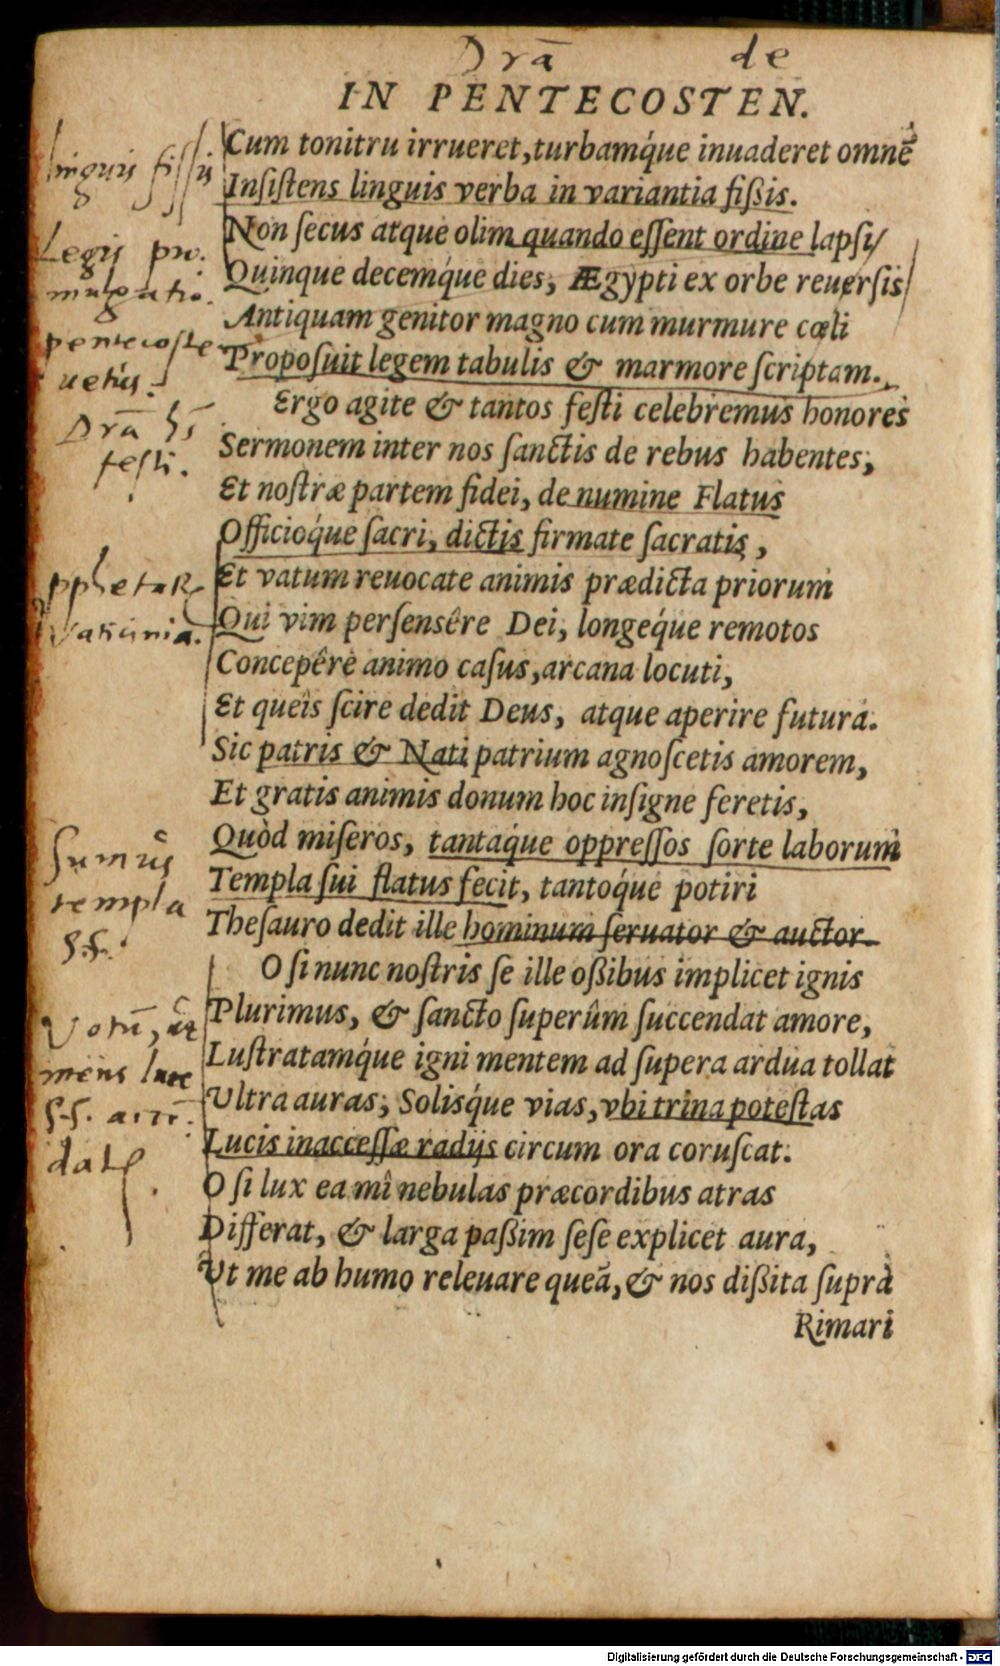 Drā de
IN PENTECOSTEN.
Cum tonitru irrueret, turbamq́ue inuaderet omnē
Insistens linguis verba in variantia fißis.
Non secus atque olim quando essent ordine lapsi
Quinque decemq́ue dies, Ægypti ex orbe reuersis
Antiquam genitor magno cum murmure cœli
Proposuit legem tabulis & marmore scriptam.
Ergo agite & tantos festi celebremus honores
Sermonem inter nos sanctis de rebus habentes,
Et nostræ partem fidei, de numine Flatus
Officioq́ue sacri, dictis firmate sacratis,
Et vatum reuocate animis prædicta priorum
Qui vim persensêre Dei, longeq́ue remotos
Concepêre animo casus, arcana locuti,
Et queîs scire dedit Deus, atque aperire futura.
Sic patris & Nati patrium agnoscetis amorem,
Et gratis animis donum hoc insigne feretis,
Quòd miseros, tantaq́ue oppressos sorte laborum
Templa sui flatus fecit, tantoq́ue potiri
Thesauro dedit ille hominum seruator & auctor.
O si nunc nostris se ille oßibus implicet ignis
Plurimus, & sancto superûm succendat amore,
Lustratamq́ue igni mentem ad supera ardua tollat
Vltra auras, Solisq́ue vias, vbi trina potestas
Lucis inaccessæ radijs circum ora coruscat.
O si lux ea mî nebulas præcordibus atras
Differat, & larga paßim sese explicet aura,
Vt me ab humo releuare queā, & nos dißita suprà
Rimari
linguis fissis
Legis pro.
mulgatio.
pentecoste
uetus.
Drā
festi.
pphetaR
Vaticinia.
Sumus
templa
S.S.
Votū, ut
mens luce
S.S.
Digitalisierung gefördert durch die Deutsche Forschungsgemeinschaft - DFG